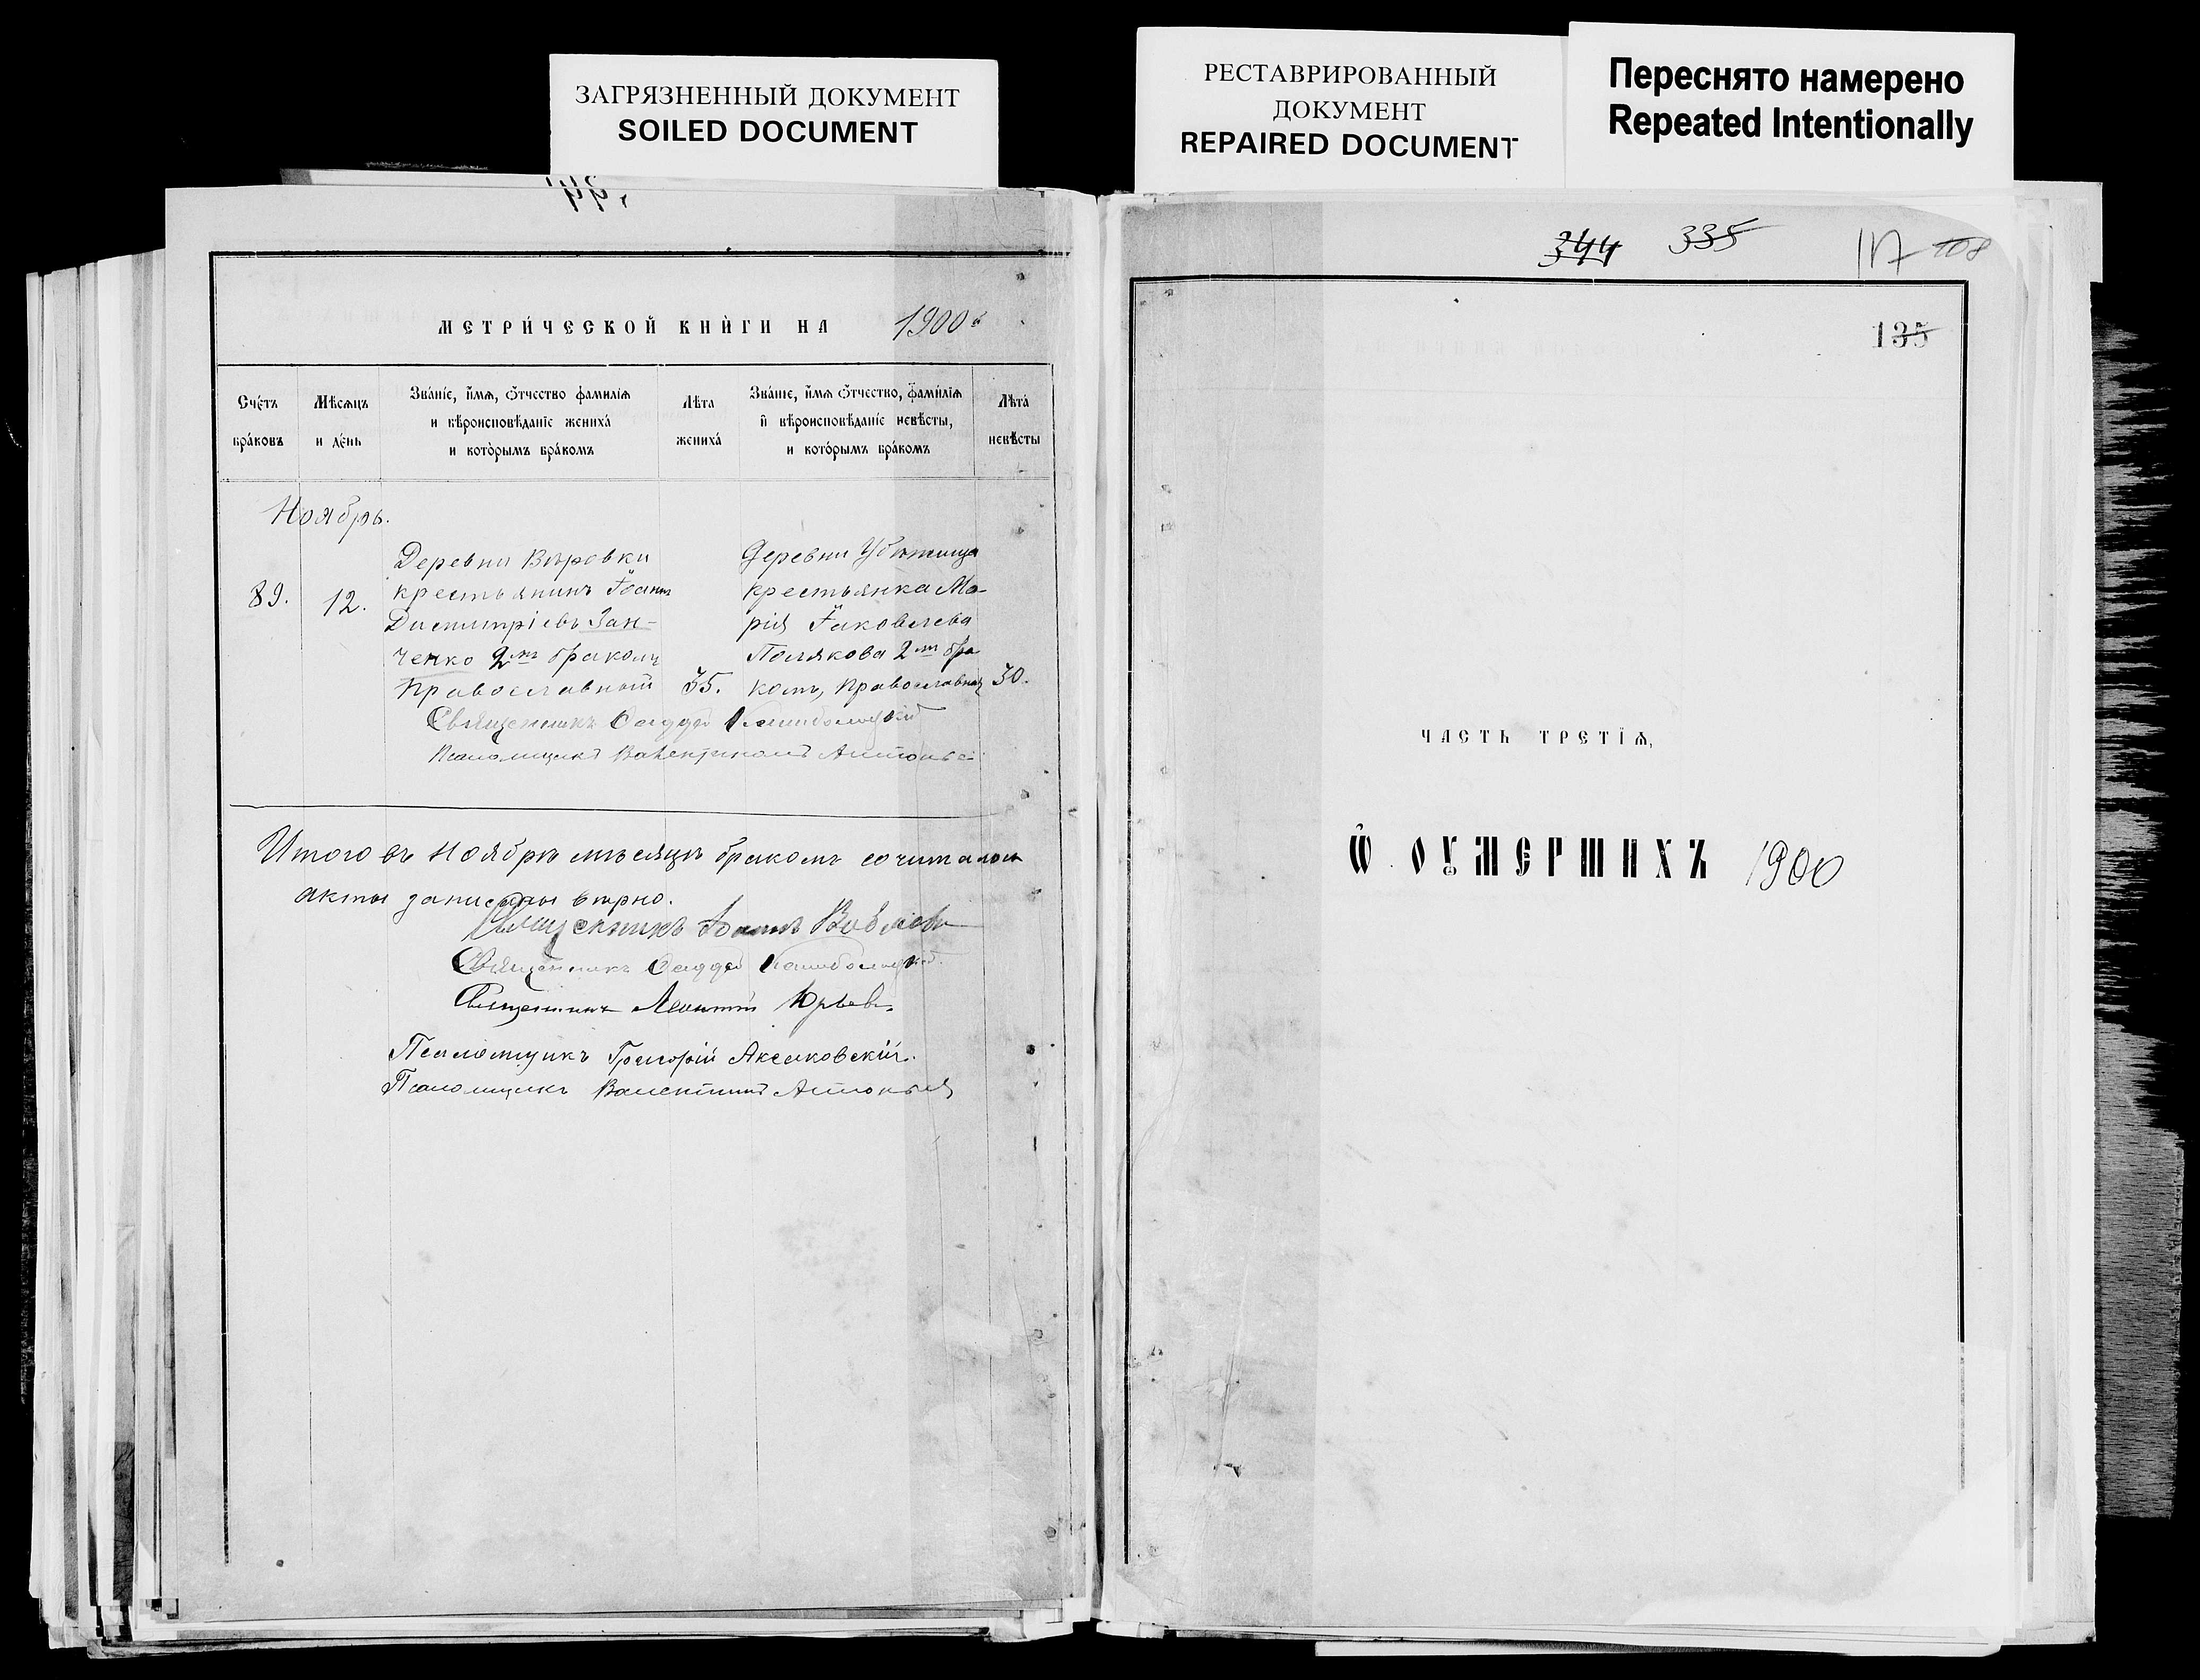 ЗАГРЯЗНЕННЫЙ ДОКУМЕНТ
SOILED DOCUMENT
РЕСТАВРИРОВАННЫЙ
ДОКУМЕНТ
REPAIRED DOCUMENT
Переснято намерено
Repeated Intentionally
МЕТРИ́ЧЕСКОЙ КНЍГИ НА 1900
Сче́тъ бра́ковъ
Мѣ́сяцъ и де́нь
Зва́ніе, и҆́мѧ, ѻ҆́тчество фами́лїѧ
и вѣроисповѣ́данїе жениха̀
и кото́рымъ бра́комъ
Лѣ́та жениха̀
Зва́нїе, и҆́мѧ ѻ҆́тчество, фами́лїѧ
и҆ вѣроисповѣ́данїе невѣ́сты,
и кото́рымъ бра́комъ
Лѣ́та невѣ́сты
Ноябрь.
89.
12.
Деревни Вѣровки
крестьянинъ Іоаннъ
Димитріевъ Зан-
ченко 2мъ бракомъ
Православный
35.
Деревни Убѣжища
крестьянка Ма-
рія Іаковлева
Полякова 2мъ бра
комъ, Православная
30.
Священникъ
Псаломщикъ Валентинъ
Итого въ Ноябрѣ мѣсяцѣ бракомъ сочитались
акты записаны вѣрно.
Священникъ Іоаннъ
Священникъ
Священникъ Леонтій Юрьевъ
Псаломщикъ Григорій Аксаковскій.
Псаломщикъ Валентинъ
344 335 117 108
135
ЧАСТЬ ТРЕТЇѦ,
Ѡ҆ ОУМЕРШИХЪ 1900